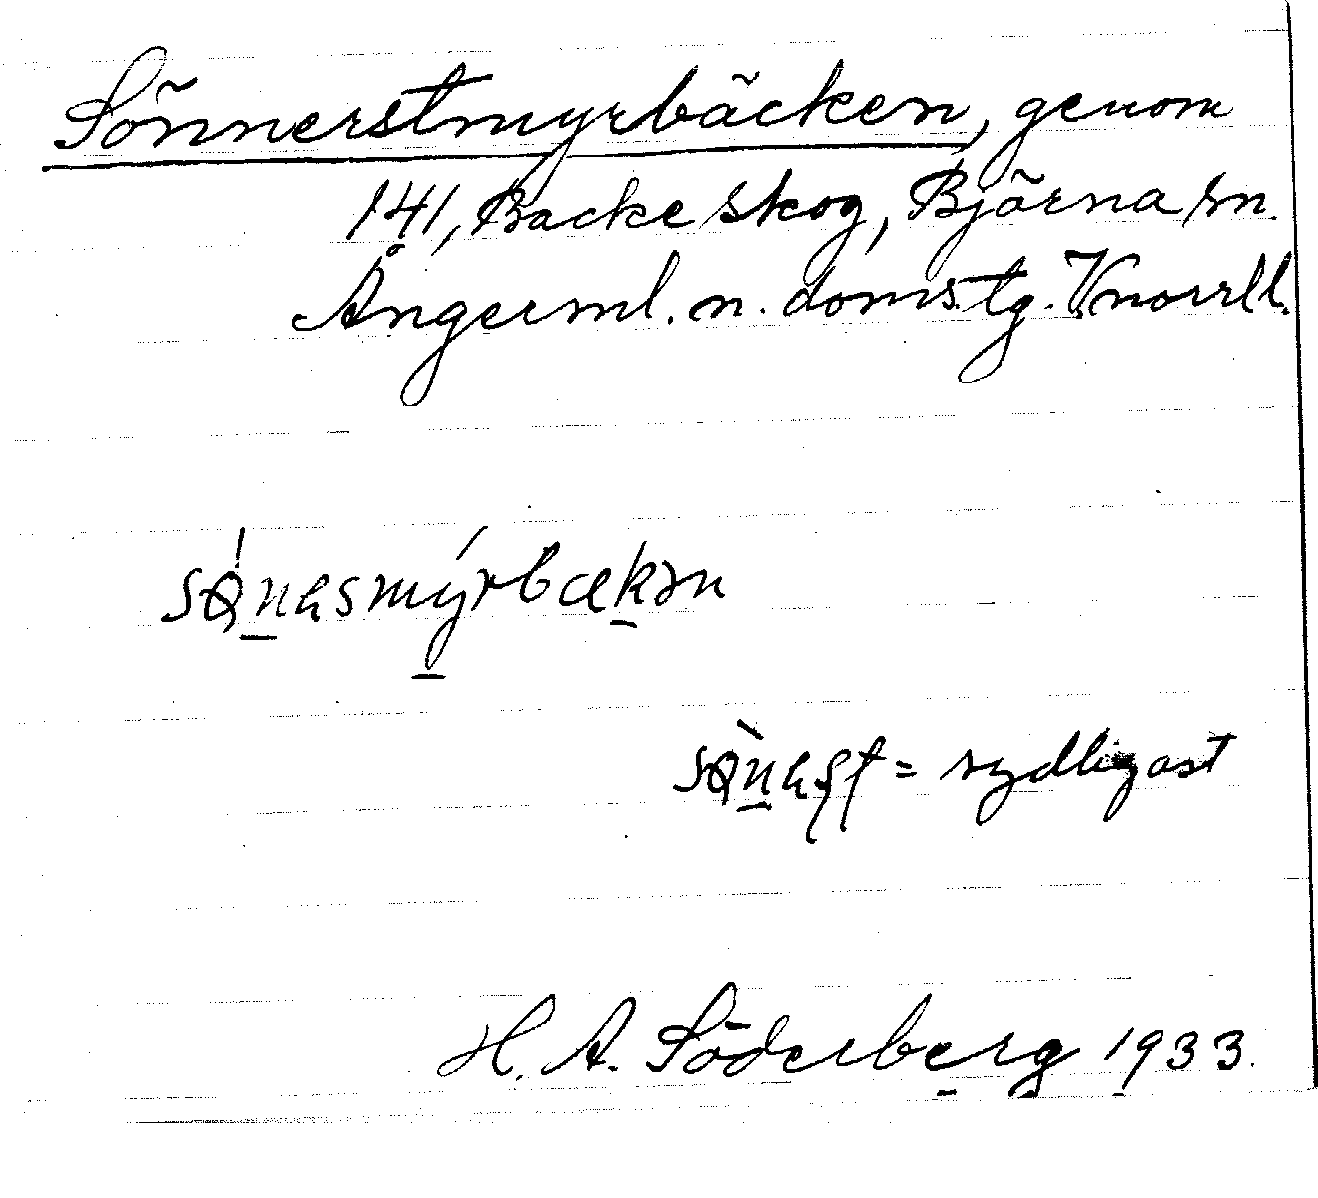 Sönnerstmyrbäcken, genom
141, Backe skog, Björna sn.
Ångerml. n. doms.tg. Vnorrl l.
sǿnasmýrbækən
= sydligast
H. A. Söderberg 1933.